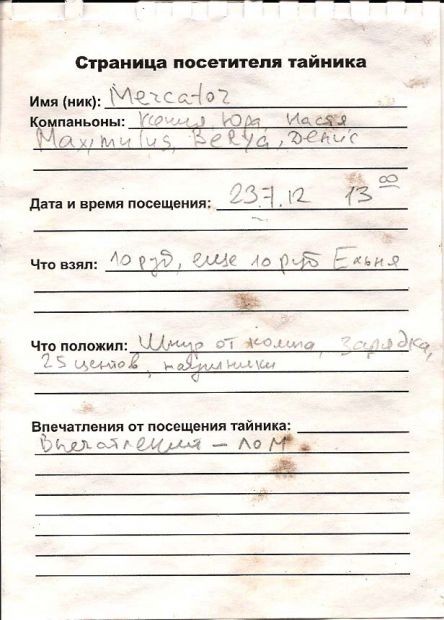 Страница посетителя тайника
Имя (ник): Mercator
Компаньоны: Ксения, Юра, Настя
Maximulus, Belya, Денис
Дата и время посещения: 23.7.12 13 00
Что взял: 10 руб, еще 10 руб Ельня
Что положил: Шнур от компа, зарядка,
25 центов, наушники
Впечатления от посещения тайника:
Впечатлений – лом